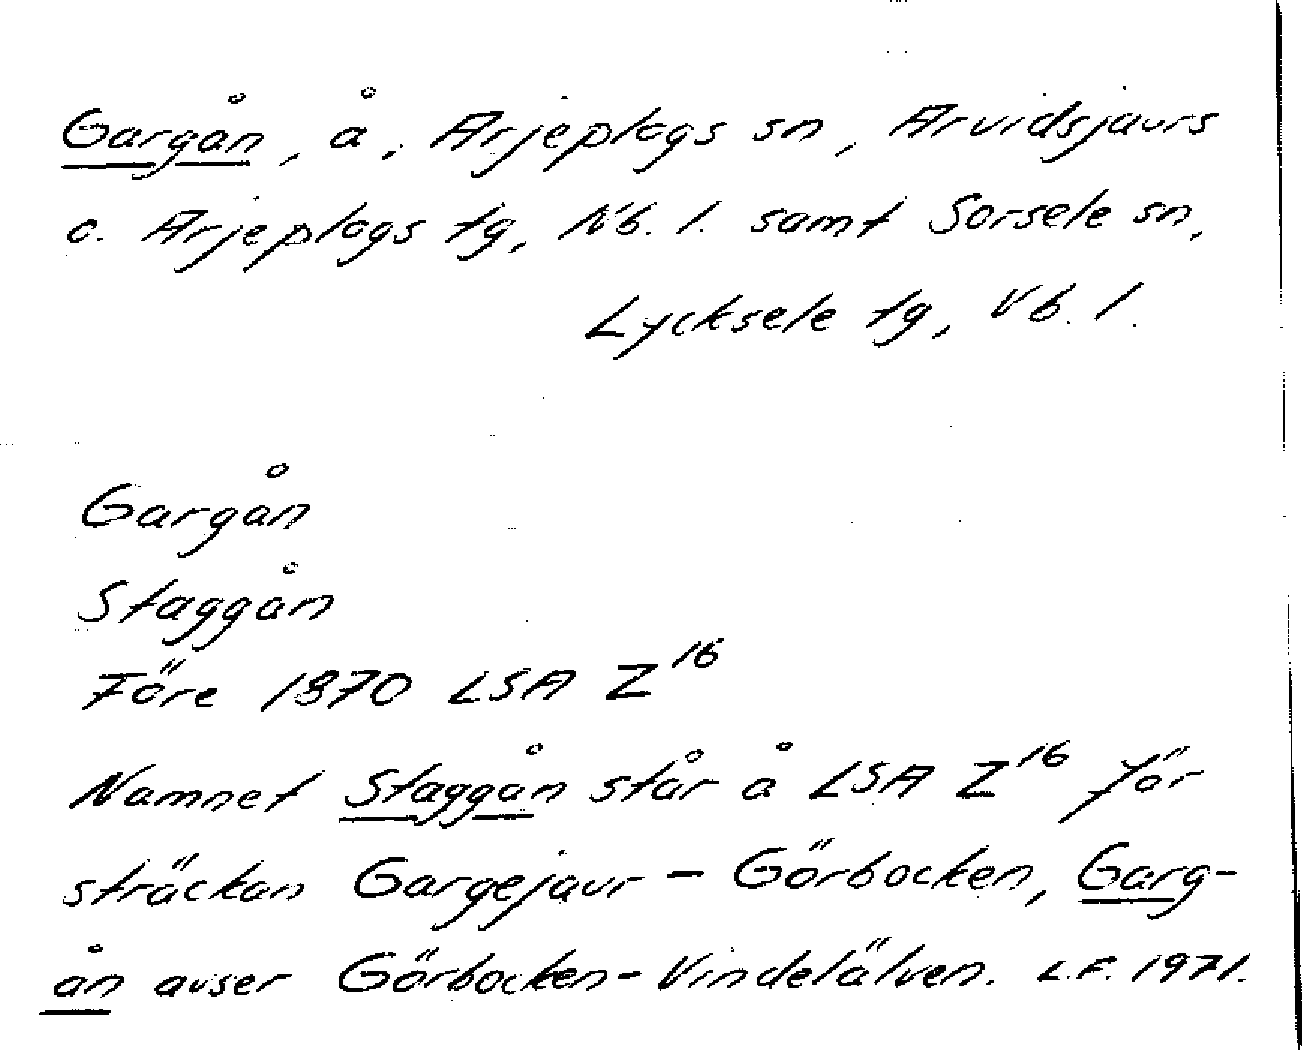 Gargån, å, Arjeplogs sn, Arvidsjaurs
o. Arjeplogs tg, Nb. l. samt Sorsele sn,
Lycksele tg, Vb. l.
Gargån
Staggån
Före 1870 LSA Z¹⁶
Namnet Staggån står å LSA Z¹⁶ för
sträckan Gargejaur – Görbocken, Garg-
ån avser Görbocken - Vindelälven. L.F. 1971.